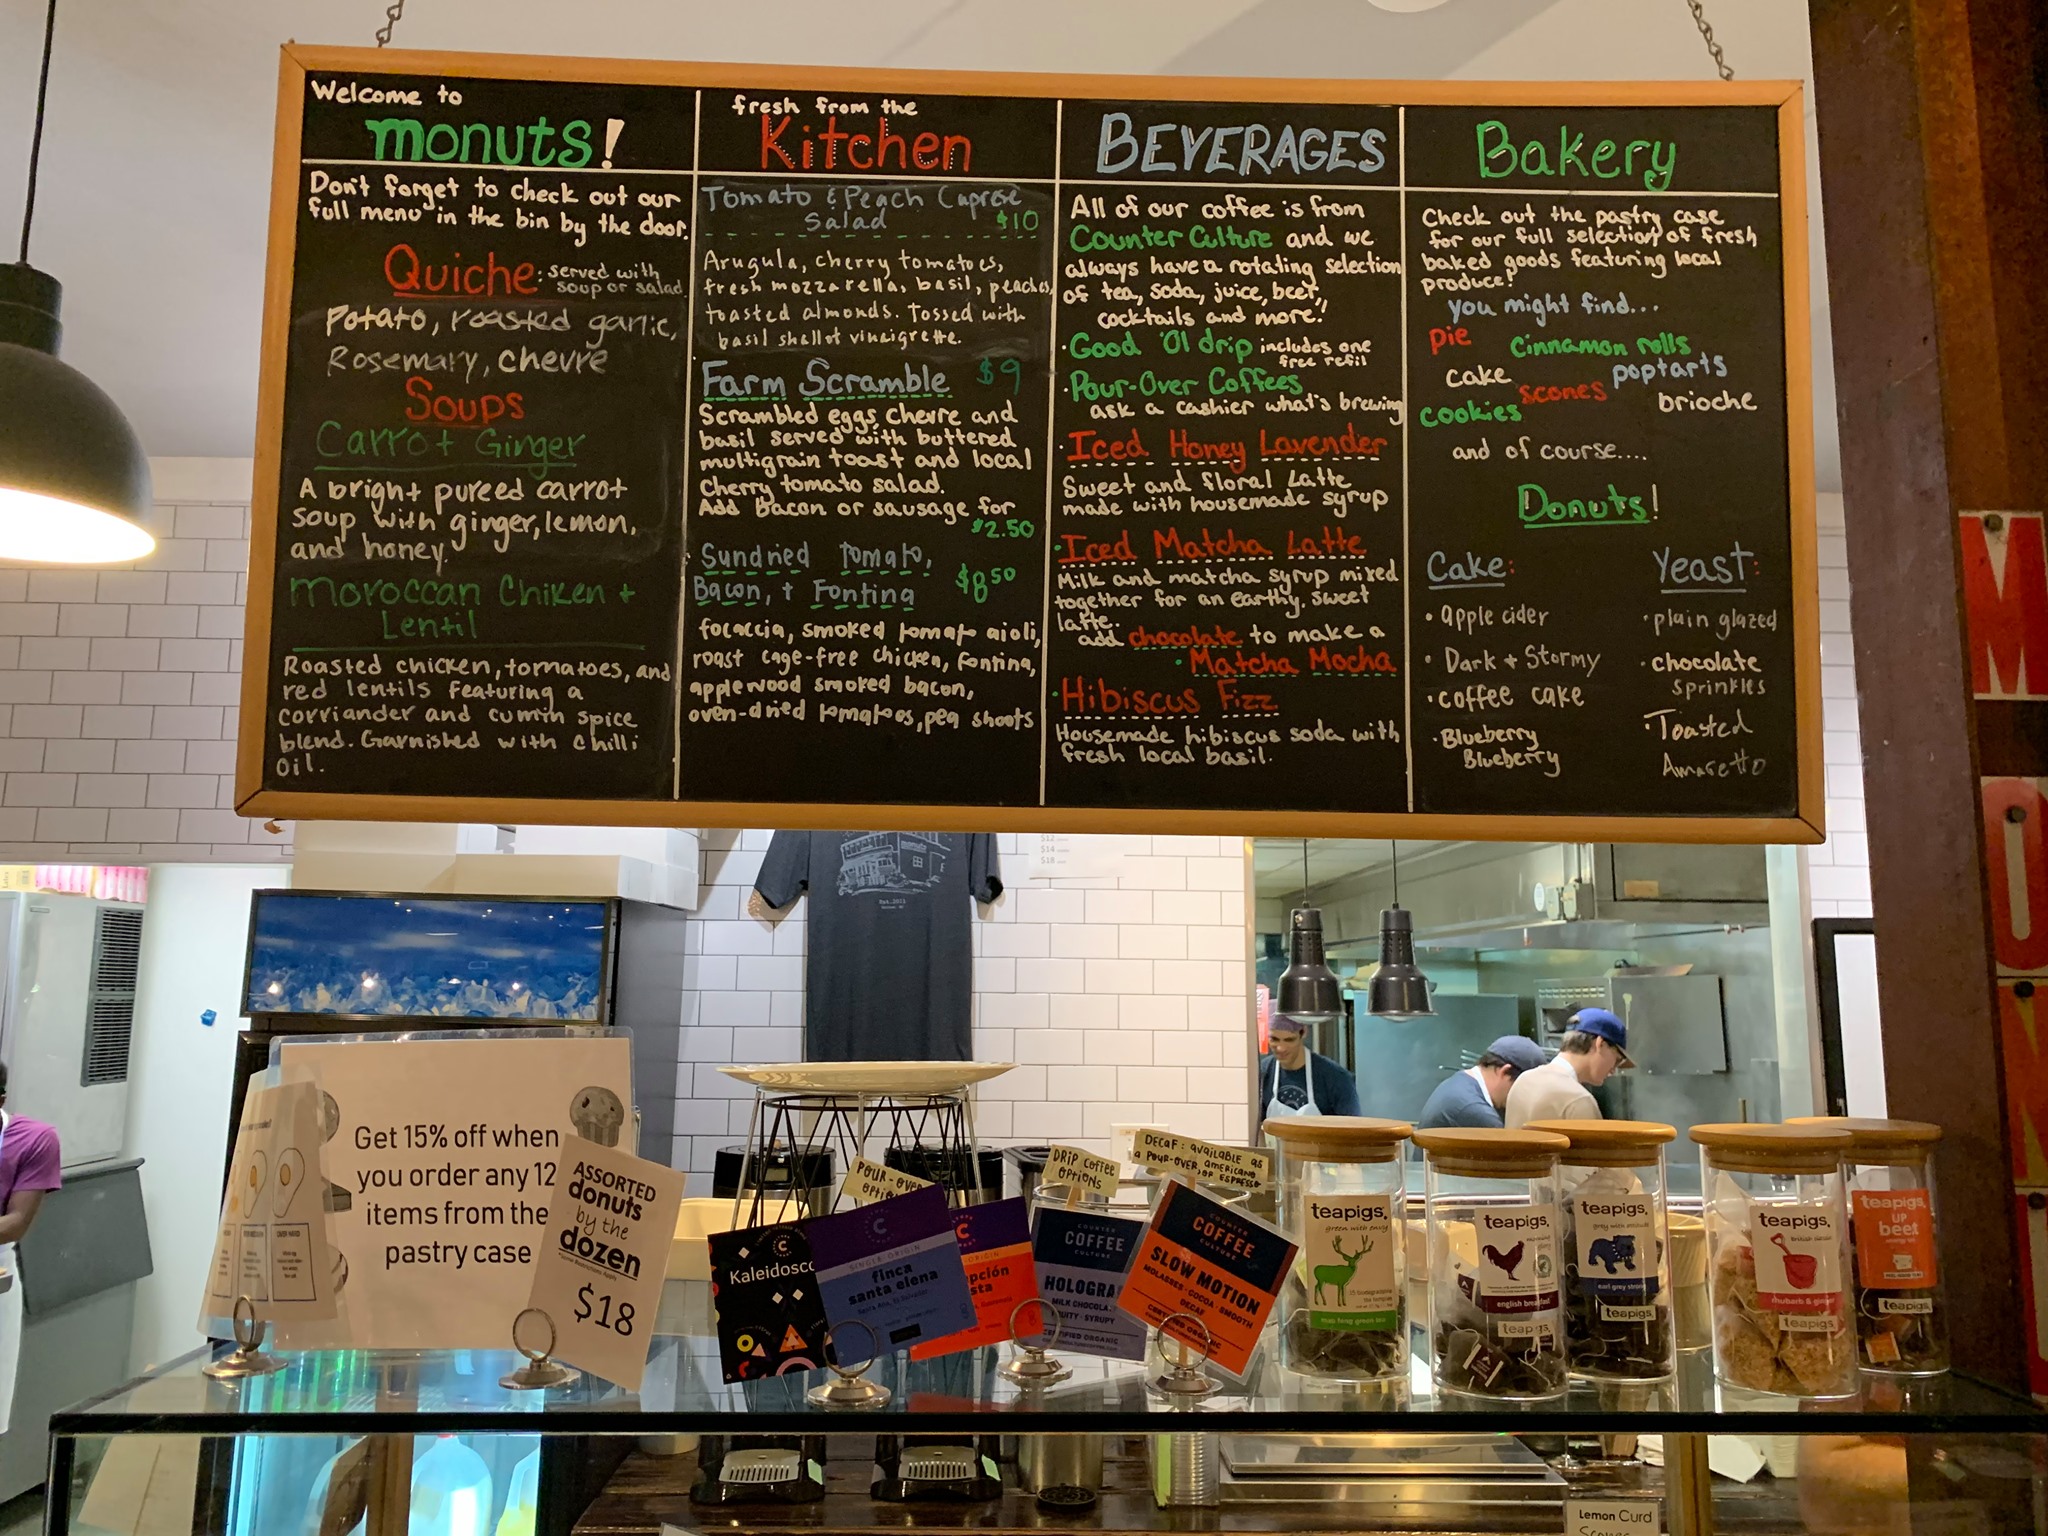 Welcome to
monuts!
Don't forget to check out our
full menu in the bin by the door.
Quiche: served with
soup or salad
Potato, roasted garlic,
Rosemary, chevre
Soups
Carrot Ginger
A bright pureed carrot
soup with ginger, lemon,
and honey.
Moroccan Chiken +
Lentil
Roasted chicken, tomatoes, and
red lentils featuring a
corriander and cumin spice
blend. Garnished with chilli
oil.
fresh from the
Kitchen
Tomato & Peach Caprese
Salad $10
Arugula, cherry tomatoes,
fresh mozzarella, basil, peaches,
toasted almonds. Tossed with
basil shallot vinaigrette.
Farm Scramble $9
Scrambled eggs, chevre and
basil served with buttered
multigrain toast and local
cherry tomato salad.
Add Bacon or sausage for
$2.50
Sundried tomato,
Bacon, + Fontina $8 50
focaccia, smoked tomato aioli,
roast cage-free chicken, fontina,
applewood smoked bacon,
oven-dried tomatoes, pea shoots
BEVERAGES
All of our coffee is from
Counter Culture and we
always have a rotating selection
of tea, soda, juice, beer,
cocktails and more!
• Good 'Ol drip includes one
free refil
• Pour-Over Coffees
ask a cashier what's brewing
• Iced Honey Lavender
Sweet and floral Latte
made with housemade syrup
• Iced Matcha Latte
Milk and matcha syrup mixed
together for an earthy, sweet
latte.
add chocolate to make a
• Matcha Mocha
• Hibiscus Fizz
Housemade hibiscus soda with
fresh local basil.
Bakery
Check out the pastry case
for our full selection of fresh
baked goods featuring local
produce!
you might find...
pie cinnamon rolls
cake scones poptarts
cookies brioche
and of course....
Donuts!
Cake:
• apple cider
• Dark + Stormy
• coffee cake
• Blueberry
Blueberry
Yeast:
• plain glazed
• chocolate
sprinkles
• Toasted
Amaretto
M
O
N
$12
$14
$18
monuts
Est. 2011
Get 15% off when
you order any 12
items from the
pastry case
ASSORTED
donuts
by the
dozen
$18
POUR-OVER
Kaleidosco
SINGLE ORIGIN
finca
santa elena
ORIGIN
pción
sta
DRIP COFFEE
OPTIONS
COUNTER
COFFEE
CULTURE
HOLOGRA
MILK CHOCOLA
UITY · SYRUPY
CERTIFIED ORGANIC
DECAF: AVAILABLE AS
A POUR-OVER, AMERICANO
OR ESPRESSO
COUNTER
COFFEE
CULTURE
SLOW MOTION
MOLASSES · COCOA · SMOOTH
DECAF
CERTIFIED ORGANIC
teapigs.
green with envy
mao feng green tea
teapigs.
morning glory
english breakfast
teapigs.
teapigs.
earl grey strong
teapigs.
teapigs.
british classic
rhubarb & ginger
teapigs.
teapigs.
UP
beet
teapigs.
Lemon Curd
Scones